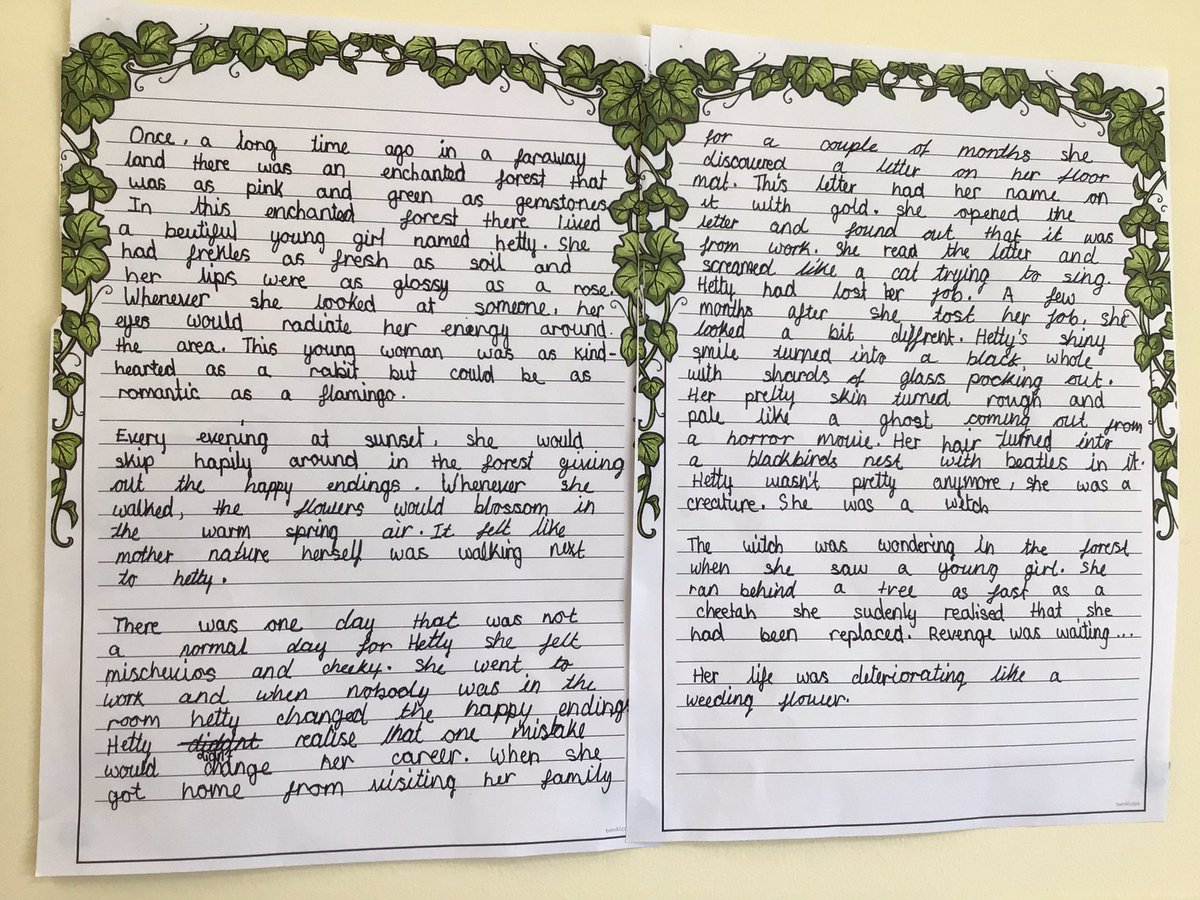 Once, a long time ago in a faraway
land there was an enchanted forest that
was as pink and green as gemstones.
In this enchanted forest there lived
a beutiful young girl named hetty. She
had frekles as fresh as soil and
her lips were as glossy as a rose.
Whenever she looked at someone, her
eyes would radiate her energy around.
the area. This young woman was as kind-
hearted as a rabit but could be as
romantic as a flamingo.
Every evening at sunset, she would
skip hapily around in the forest giving
out the happy endings. Whenever she
walked, the flowers would blossom in
the warm spring air. It felt like
mother nature herself was walking next
to hetty.
There was one day that was not
a normal day for Hetty she felt
mischevios and cheeky. She went to
work and when nobody was in the
room hetty changed the happy ending
Hetty didn't realise that one mistake
would change her career. When she
got home from visiting her family
for a couple of months she
discovered a letter on her floor
mat. This letter had her name on
it with gold. She opened the
letter and found out that it was
from work. She read the letter and
screamed like a cat trying to sing.
Hetty had lost her job. A few
months after she lost her job, she
looked a bit diffrent. Hetty's shiny
smile turned into a black, whole
with shards of glass pocking out.
Her pretty skin turned rough and
pale like a ghost coming out from
a horror movie. Her hair turned into
a blackbirds nest with beatles in it.
Hetty wasn't pretty anymore, she was a
creature. She was a witch
The witch was wondering in the forest
when she saw a young girl. She
ran behind a tree as fast as a
cheetah she sudenly realised that she
had been replaced. Revenge was waiting...
Her life was deteriorating like a
weeding flower.